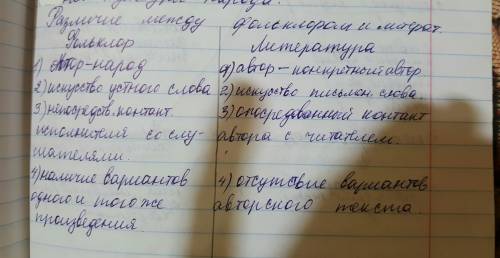 народа.
Различие между фольклором и литерат.
Фольклор
Литература
1) Автор-народ
1) автор - конкретный автор
2) искусство устного слова
2) искусство письмен. слова
3) непосредств. контакт
исполнителя со слу-
шателями.
3) опосредованный контакт
автора с читателем.
4) наличие вариантов
одного и того же
произведения.
4) отсутствие вариантов
авторского текста.